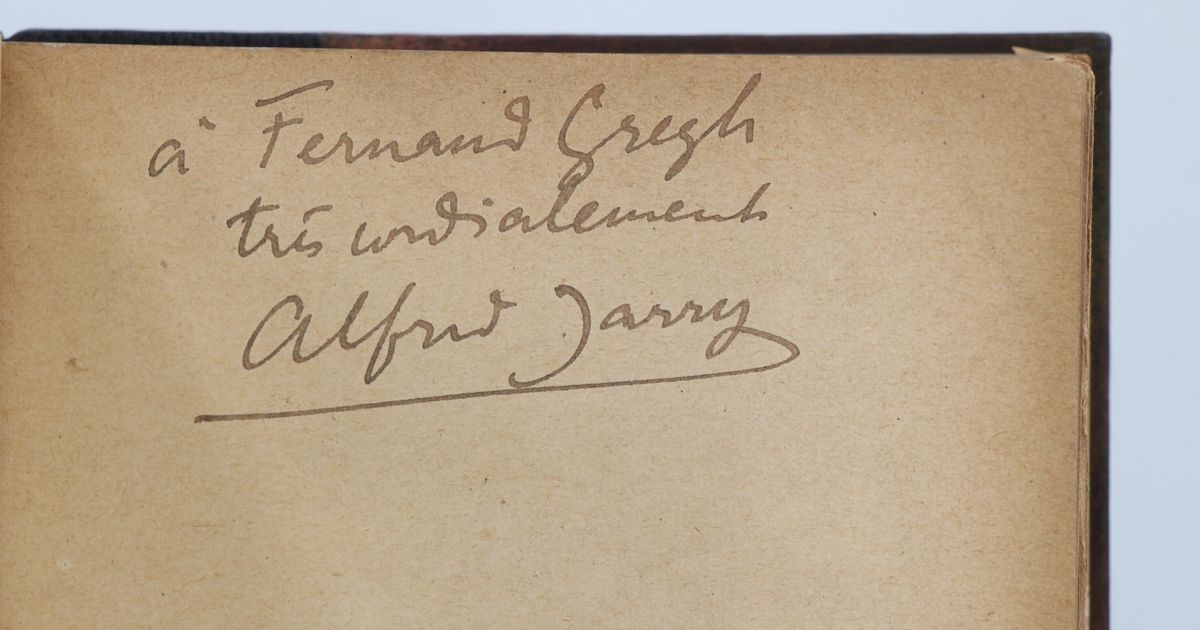 à Fernand Gregh
très cordialement
Alfred Jarry